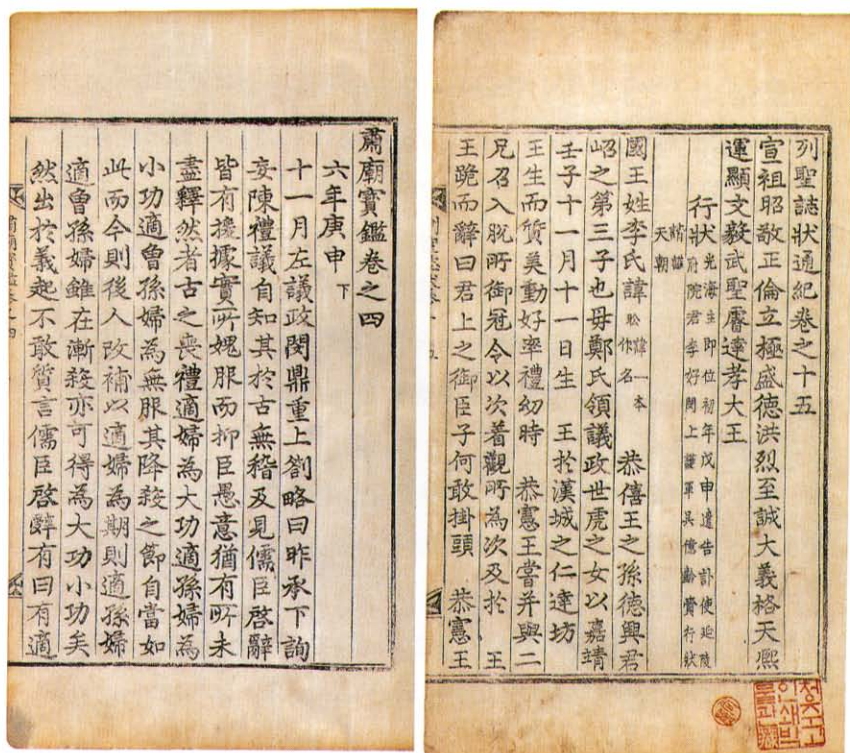 列聖誌狀通紀卷之十五
宣祖昭敬正倫立極盛德洪烈至誠大義格天熙
運顯文毅武聖睿達孝大王
行狀
光海主即位初年戊申遣告訃使延陵
府院君李好閔上護軍吳億齡賫行狀
請謚
天朝
國王姓李氏諱 諱一本昖作名 恭僖王之孫德興君
岹之第三子也母鄭氏領議政世虎之女以嘉靖
壬子十一月十一日生 王於漢城之仁達坊
王生而質美動好率禮幼時 恭憲王嘗并與二
兄召入脫所御冠令以次着觀所為次及於 王
王跪而辭曰君上之御臣子何敢掛頭 恭憲王
청주고
인쇄박
물관
肅廟寶鑑卷之四
六年庚申 下
十一月左議政閔鼎重上劄略曰昨承下詢
妄陳禮議自知其於古無稽及見儒臣啓辭
皆有援據實所媿服而抑臣愚意猶有所未
盡釋然者古之喪禮適婦為大功適孫婦為
小功適曾孫婦為無服其降殺之節自當如
此而今則後人改補以適婦為期則適孫婦
適曾孫婦雖在漸殺亦可得為大功小功矣
然出於義起不敢質言儒臣啓辭有曰有適